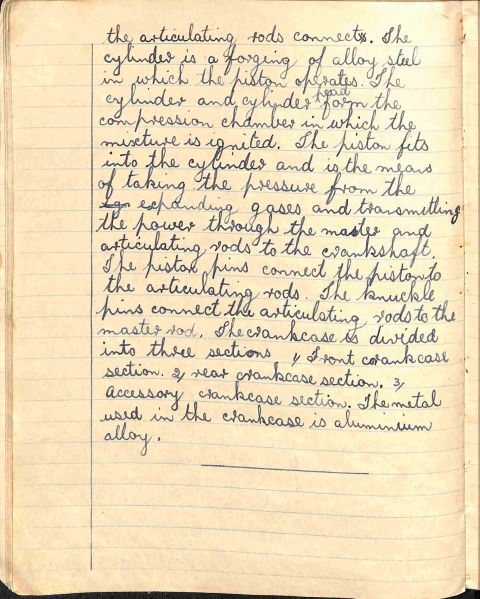 the articulating rods connects. The
cylinder is a forging of alloy steel
in which the piston operates. The
cylinder and cylinder head form the
compression chamber in which the
mixture is ignited. The piston fits
into the cylinder and is the means
of taking the pressure from the
expanding gases and transmitting
the power through the master and
articulating rods to the crankshaft.
The piston pins connect the piston to
the articulating rods. The knuckle
pins connect the articulating rods to the
master rod. The crankcase is divided
into three sections 1, Front crankcase
section. 2, rear crankcase section. 3,
Accessory crankcase section. The metal
used in the crankcase is aluminium
alloy.